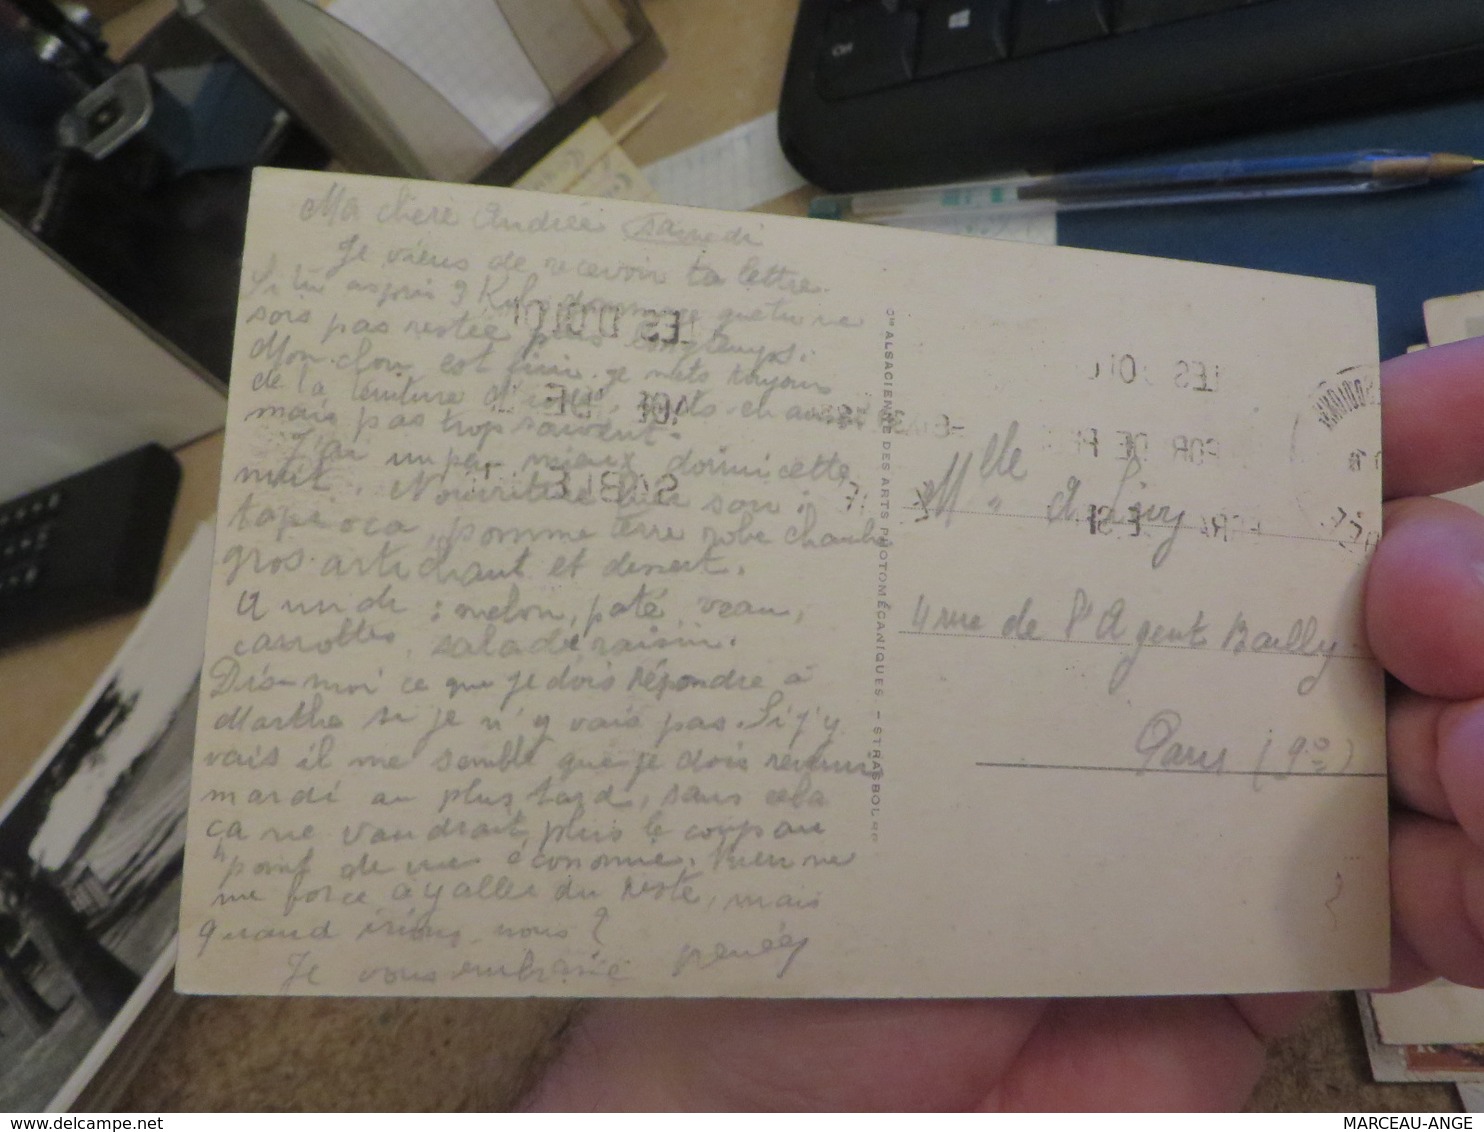 Ma chère Andrée samedi
Je viens de recevoir ta lettre.
Si tu as pris 9 K dommage que tu ne
sois pas restée plus longtemps.
Mon clou est fini. Je mets toujours
de la teinture d'iode,
mais pas trop souvent.
J'ai un peu mieux dormi cette
nuit. Nourriture hier soir :
tapioca, pomme terre robe chambre
gros artichaut et dessert.
A midi : melon, paté, veau,
carrottes, salade, raisin.
Dis-moi ce que je dois répondre à
Marthe si je n'y vais pas. Si j'y
vais il me semble que je dois revenir
mardi au plus tard, sans cela
ça ne vaudrait plus le coup au
point de vue économie. Rien ne
me force à y aller du reste, mais
quand irions-nous ?
Je vous embrasse
Cie ALSACIENNE DES ARTS PHOTOMÉCANIQUES - STRASBOURG
Mlle A. Lévy
4 rue de l'Agent Bailly
Paris (9e)
MARCEAU-ANGE